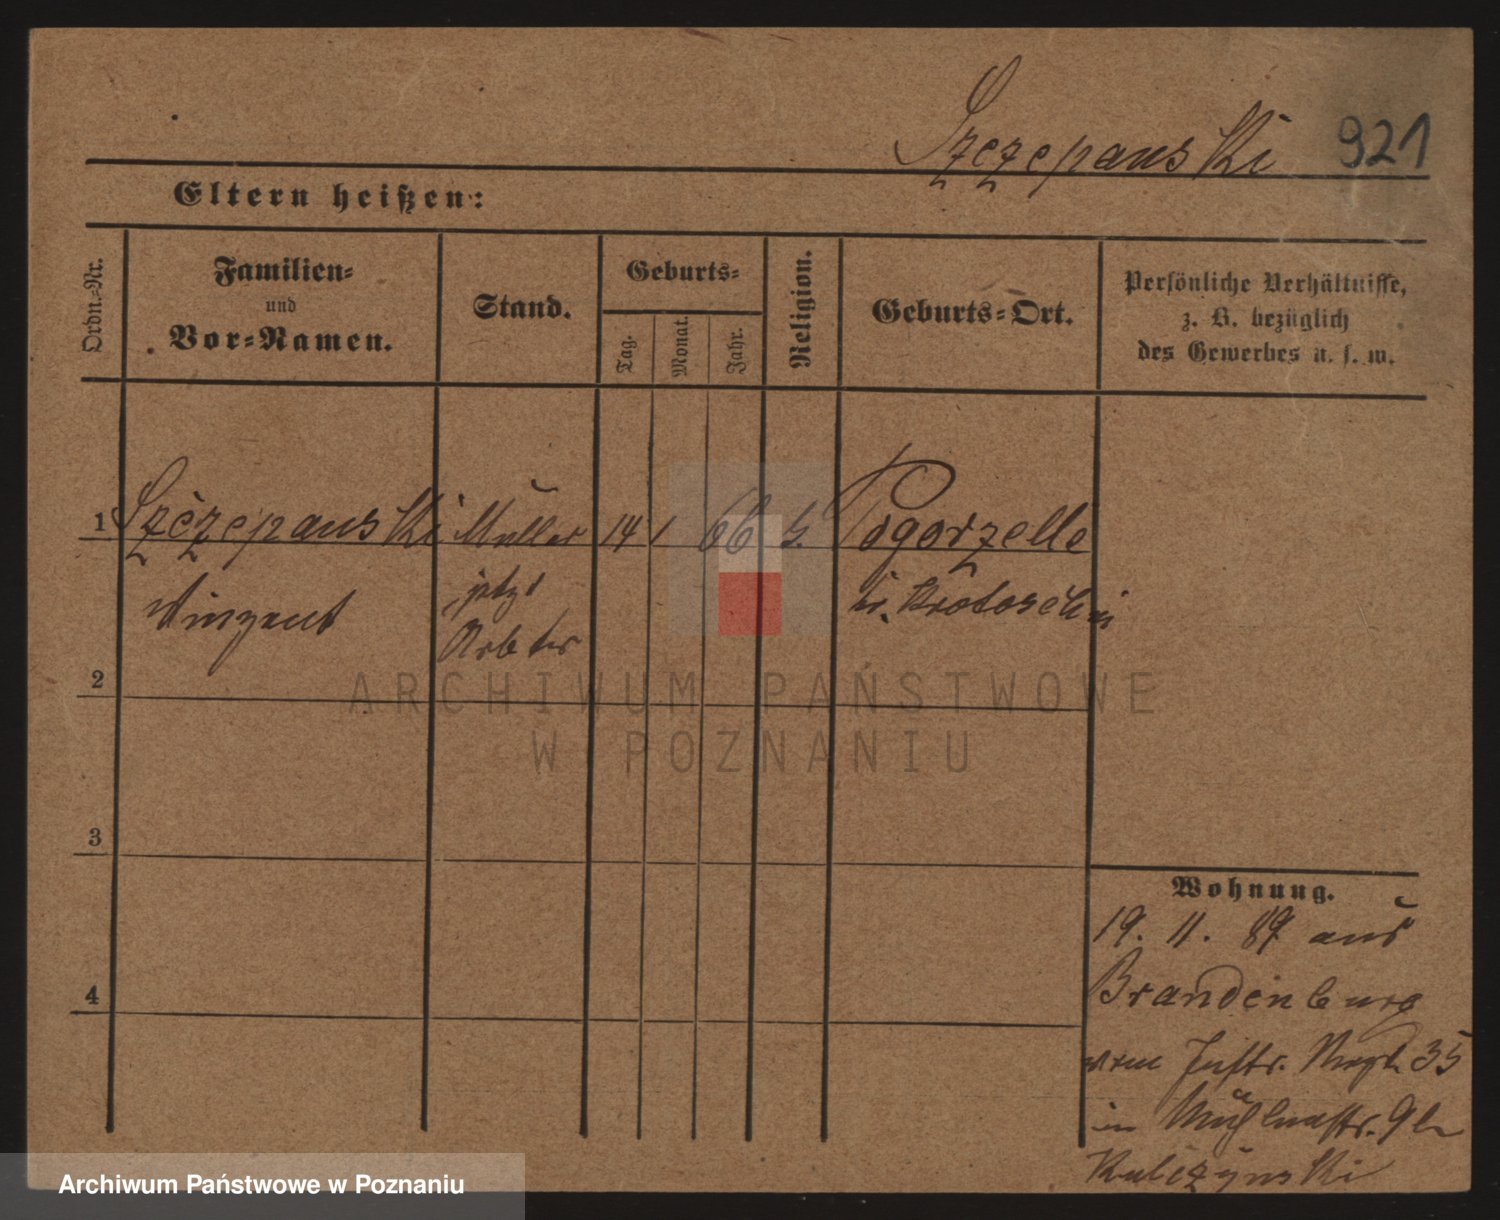 Szczepanski 921
Eltern heißen:
Ordn.-Nr.
Familien-
und
Vor-Namen.
Stand.
Geburts-
Tag.
Monat.
Jahr.
Religion.
Geburts-Ort.
Persönliche Verhältnisse,
z. B. bezüglich
des Gewerbes u. s. w.
1 Szczepanski Müller 14 1 66 Pogorzelle
Vinzent jetzt b. Krotoschin
Arbtr
2
3
4
Wohnung.
19. 11. 89 aus
Brandenburg
vom Inftr. Regt 35
in Mühlenstr. 9 b
Kulczynski
ARCHIWUM PAŃSTWOWE
W POZNANIU
Archiwum Państwowe w Poznaniu